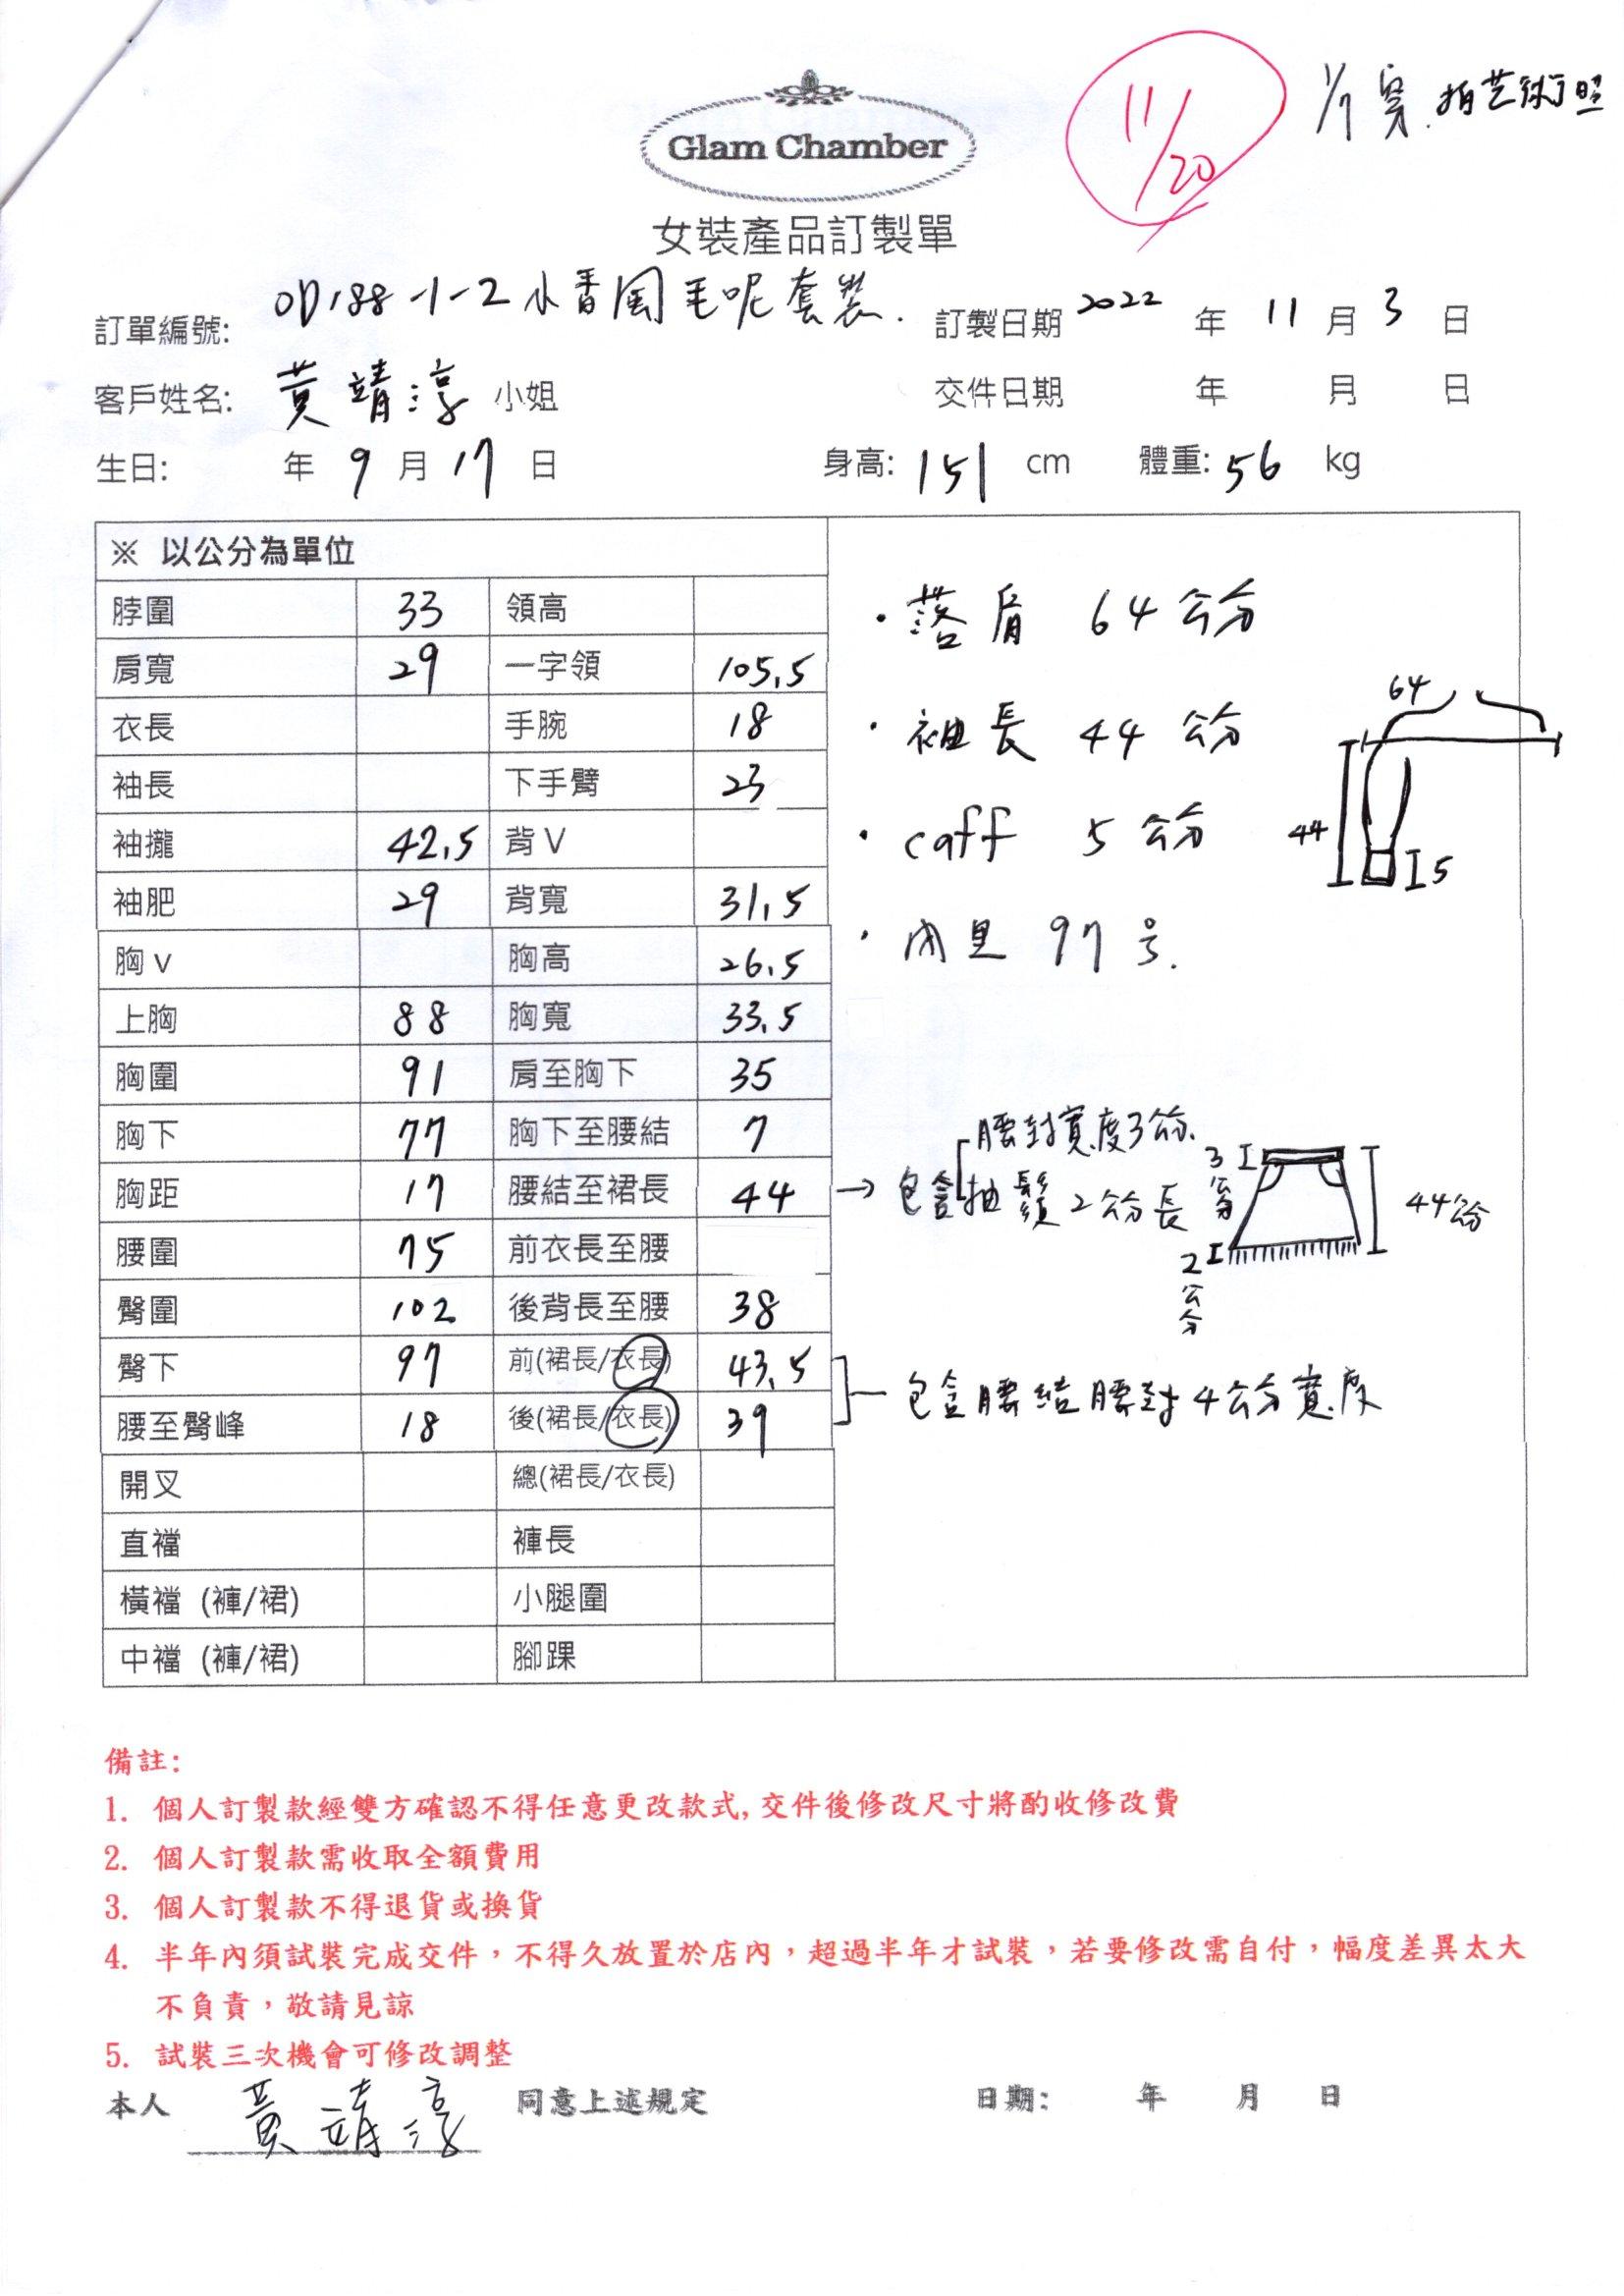 Glam Chamber
11/20
1/7 穿. 拍芒術照
女裝產品訂製單
訂單編號: OD188-1-2 小香風毛呢套裝. 訂製日期 2022 年 11 月 3 日
客戶姓名: 黃靖淳 小姐 交件日期 年 月 日
生日: 年 9 月 17 日 身高: 151 cm 體重: 56 kg
※ 以公分為單位
脖圍 33 領高
肩寬 29 一字領 105.5
衣長 手腕 18
袖長 下手臂 23
袖攏 42.5 背V
袖肥 29 背寬 31.5
胸v 胸高 26.5
上胸 88 胸寬 33.5
胸圍 91 肩至胸下 35
胸下 77 胸下至腰結 7
胸距 17 腰結至裙長 44
腰圍 75 前衣長至腰
臀圍 102 後背長至腰 38
臀下 97 前(裙長/衣長) 43.5
腰至臀峰 18 後(裙長/衣長) 39
開叉 總(裙長/衣長)
直襠 褲長
橫襠 (褲/裙) 小腿圍
中襠 (褲/裙) 腳踝
· 落肩 64 公分
· 袖長 44 公分
· caff 5 公分
· 內里 97 号.
64
44
5
→ 包含 腰封寬度3公分.
抽鬚 2公分長
3公分
2公分
44公分
包含腰結腰封4公分寬度
備註:
1. 個人訂製款經雙方確認不得任意更改款式,交件後修改尺寸將酌收修改費
2. 個人訂製款需收取全額費用
3. 個人訂製款不得退貨或換貨
4. 半年內須試裝完成交件，不得久放置於店內，超過半年才試裝，若要修改需自付，幅度差異太大
不負責，敬請見諒
5. 試裝三次機會可修改調整
本人 黃靖淳 同意上述規定 日期: 年 月 日